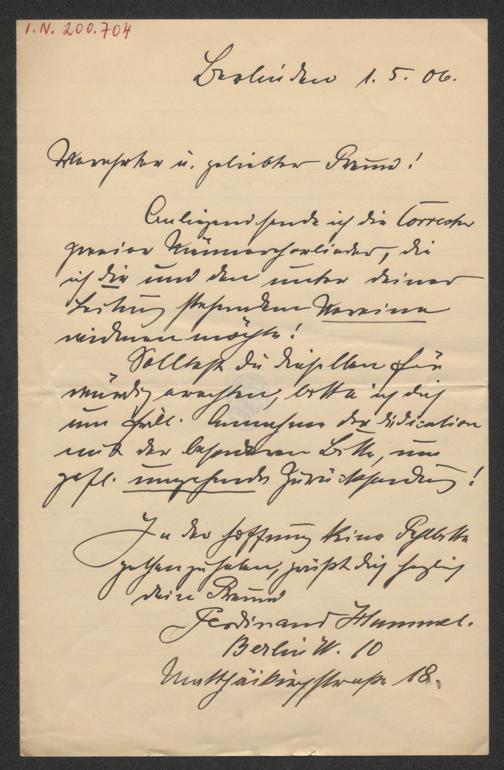 I.N. 200.704
Berlin den 1. 5. 06.
Verehrter u. geliebter Freund!
Anliegend sende ich die Correctur
zweier Männerchorlieder, die
ich dir und den unter deiner
Leitung stehenden Vereine
widmen möchte!
Solltest du dieselben für
würdig erachten, bitte ich dich
um frdl. Annahme der Dedication
mit der besonderen Bitte, um
gefl. umgehende Zurücksendung!
In der Hoffnung keine Fehlbitte
gethan zu haben, grüßt dich herzlich
dein Freund
Ferdinand Hummel.
Berlin W. 10
Matthäikirchstraße 18.